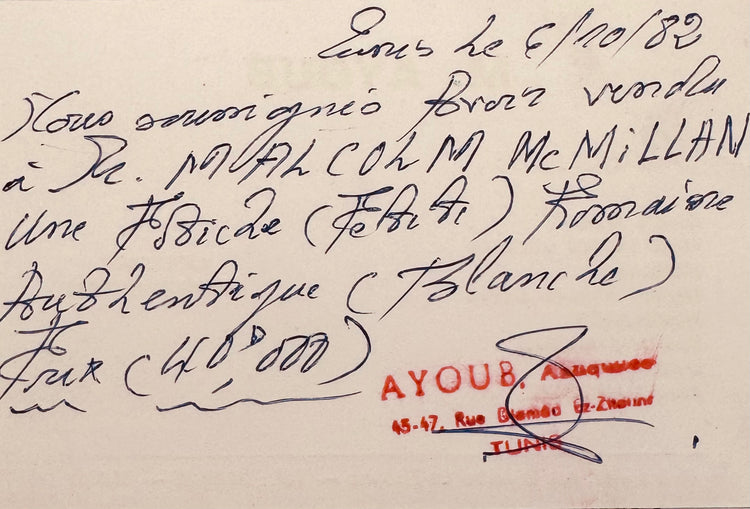 Tunis le 6/10/82
Nous soussignés Avoir vendu
à Mr. MALCOLM McMiLLAN
une Fétiche (Fetiti) Romaine
Authentique (Blanche)
Prix (40D,000)
AYOUB, Antiquités
45-47, Rue Djemâa Ez-Zitouna
TUNIS